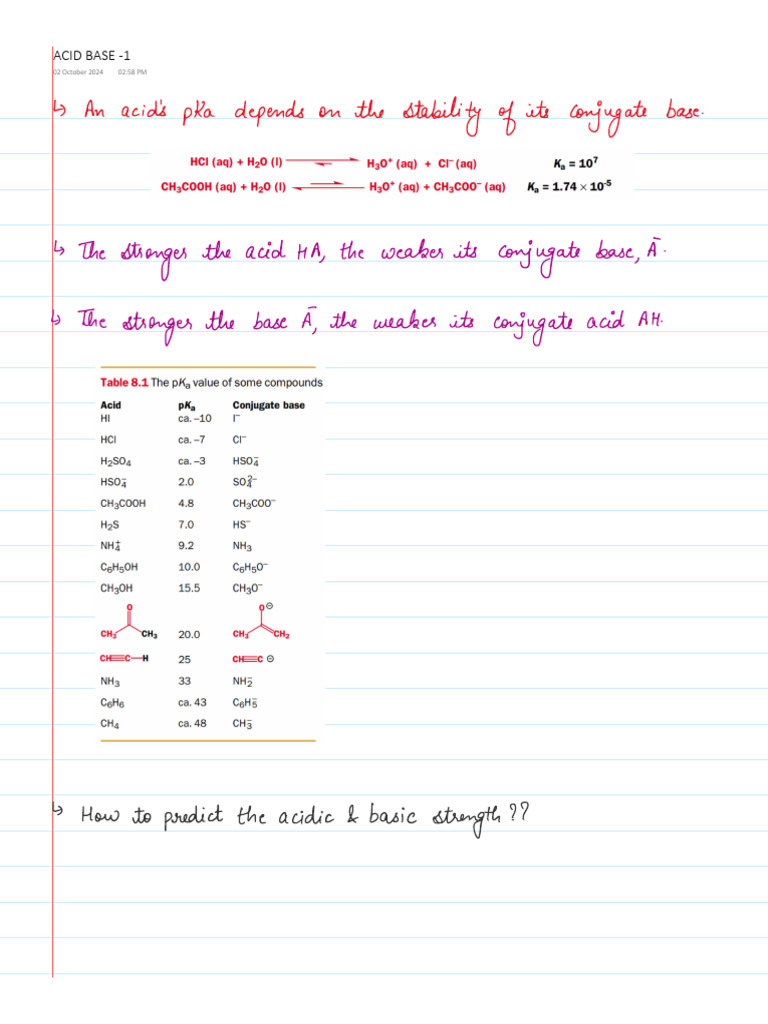 ACID BASE -1
02 October 2024 02:58 PM
↳ An acid's pKa depends on the stability of its conjugate base.
HCl (aq) + H₂O (l) ⇌ H₃O⁺ (aq) + Cl⁻ (aq) Kₐ = 10⁷
CH₃COOH (aq) + H₂O (l) ⇌ H₃O⁺ (aq) + CH₃COO⁻ (aq) Kₐ = 1.74 × 10⁻⁵
↳ The stronger the acid HA, the weaker its conjugate base, Ā.
↳ The stronger the base Ā, the weaker its conjugate acid AH.
Table 8.1 The pKₐ value of some compounds
Acid pKₐ Conjugate base
HI ca. –10 I⁻
HCl ca. –7 Cl⁻
H₂SO₄ ca. –3 HSO₄⁻
HSO₄⁻ 2.0 SO₄²⁻
CH₃COOH 4.8 CH₃COO⁻
H₂S 7.0 HS⁻
NH₄⁺ 9.2 NH₃
C₆H₅OH 10.0 C₆H₅O⁻
CH₃OH 15.5 CH₃O⁻
O O⊖
CH₃ CH₃ 20.0 CH₃ CH₂
CH≡C—H 25 CH≡C ⊖
NH₃ 33 NH₂⁻
C₆H₆ ca. 43 C₆H₅⁻
CH₄ ca. 48 CH₃⁻
↳ How to predict the acidic & basic strength??